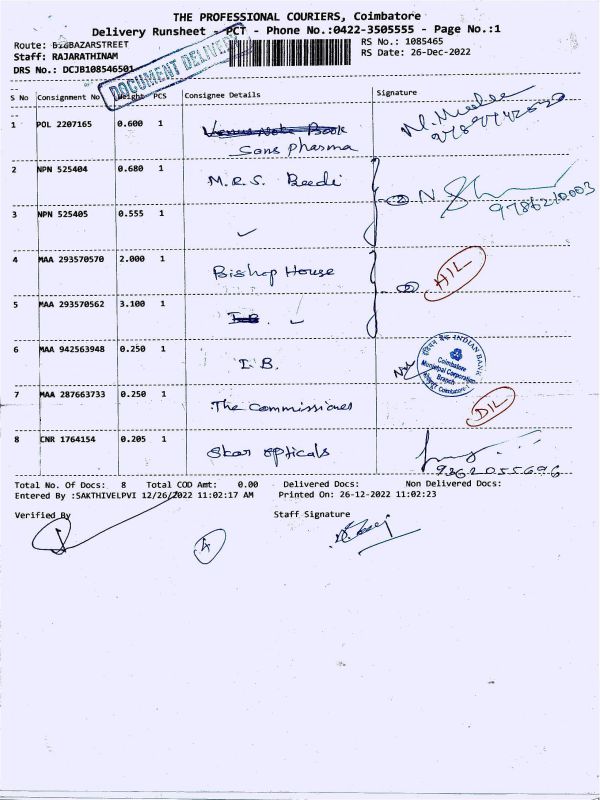 THE PROFESSIONAL COURIERS, Coimbatore
Delivery Runsheet - PCT - Phone No.:0422-3505555 - Page No.:1
Route: BIGBAZARSTREET RS No.: 1085465
Staff: RAJARATHINAM RS Date: 26-Dec-2022
DRS No.: DCJB108546501
DOCUMENT DELIVERY
S No Consignment No Weight PCS Consignee Details Signature
1 POL 2207165 0.600 1 Venus Note Book
Sans pharma
2 NPN 525404 0.680 1 M.R.S. Beedi
9786210003
3 NPN 525405 0.555 1
4 MAA 293570570 2.000 1 Bishop House HIL
5 MAA 293570562 3.100 1 I.B.
6 MAA 942563948 0.250 1 I.B.
INDIAN BANK
Coimbatore
Municipal Corporation
Branch
7 MAA 287663733 0.250 1 The Commissioner DIL
8 CNR 1764154 0.205 1 Star opticals
9362055696
Total No. Of Docs: 8 Total COD Amt: 0.00 Delivered Docs: Non Delivered Docs:
Entered By :SAKTHIVELPVI 12/26/2022 11:02:17 AM Printed On: 26-12-2022 11:02:23
Verified By Staff Signature